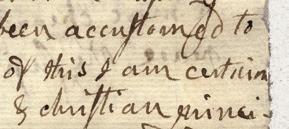 been accustomed to
of this I am certain
& christian princi-